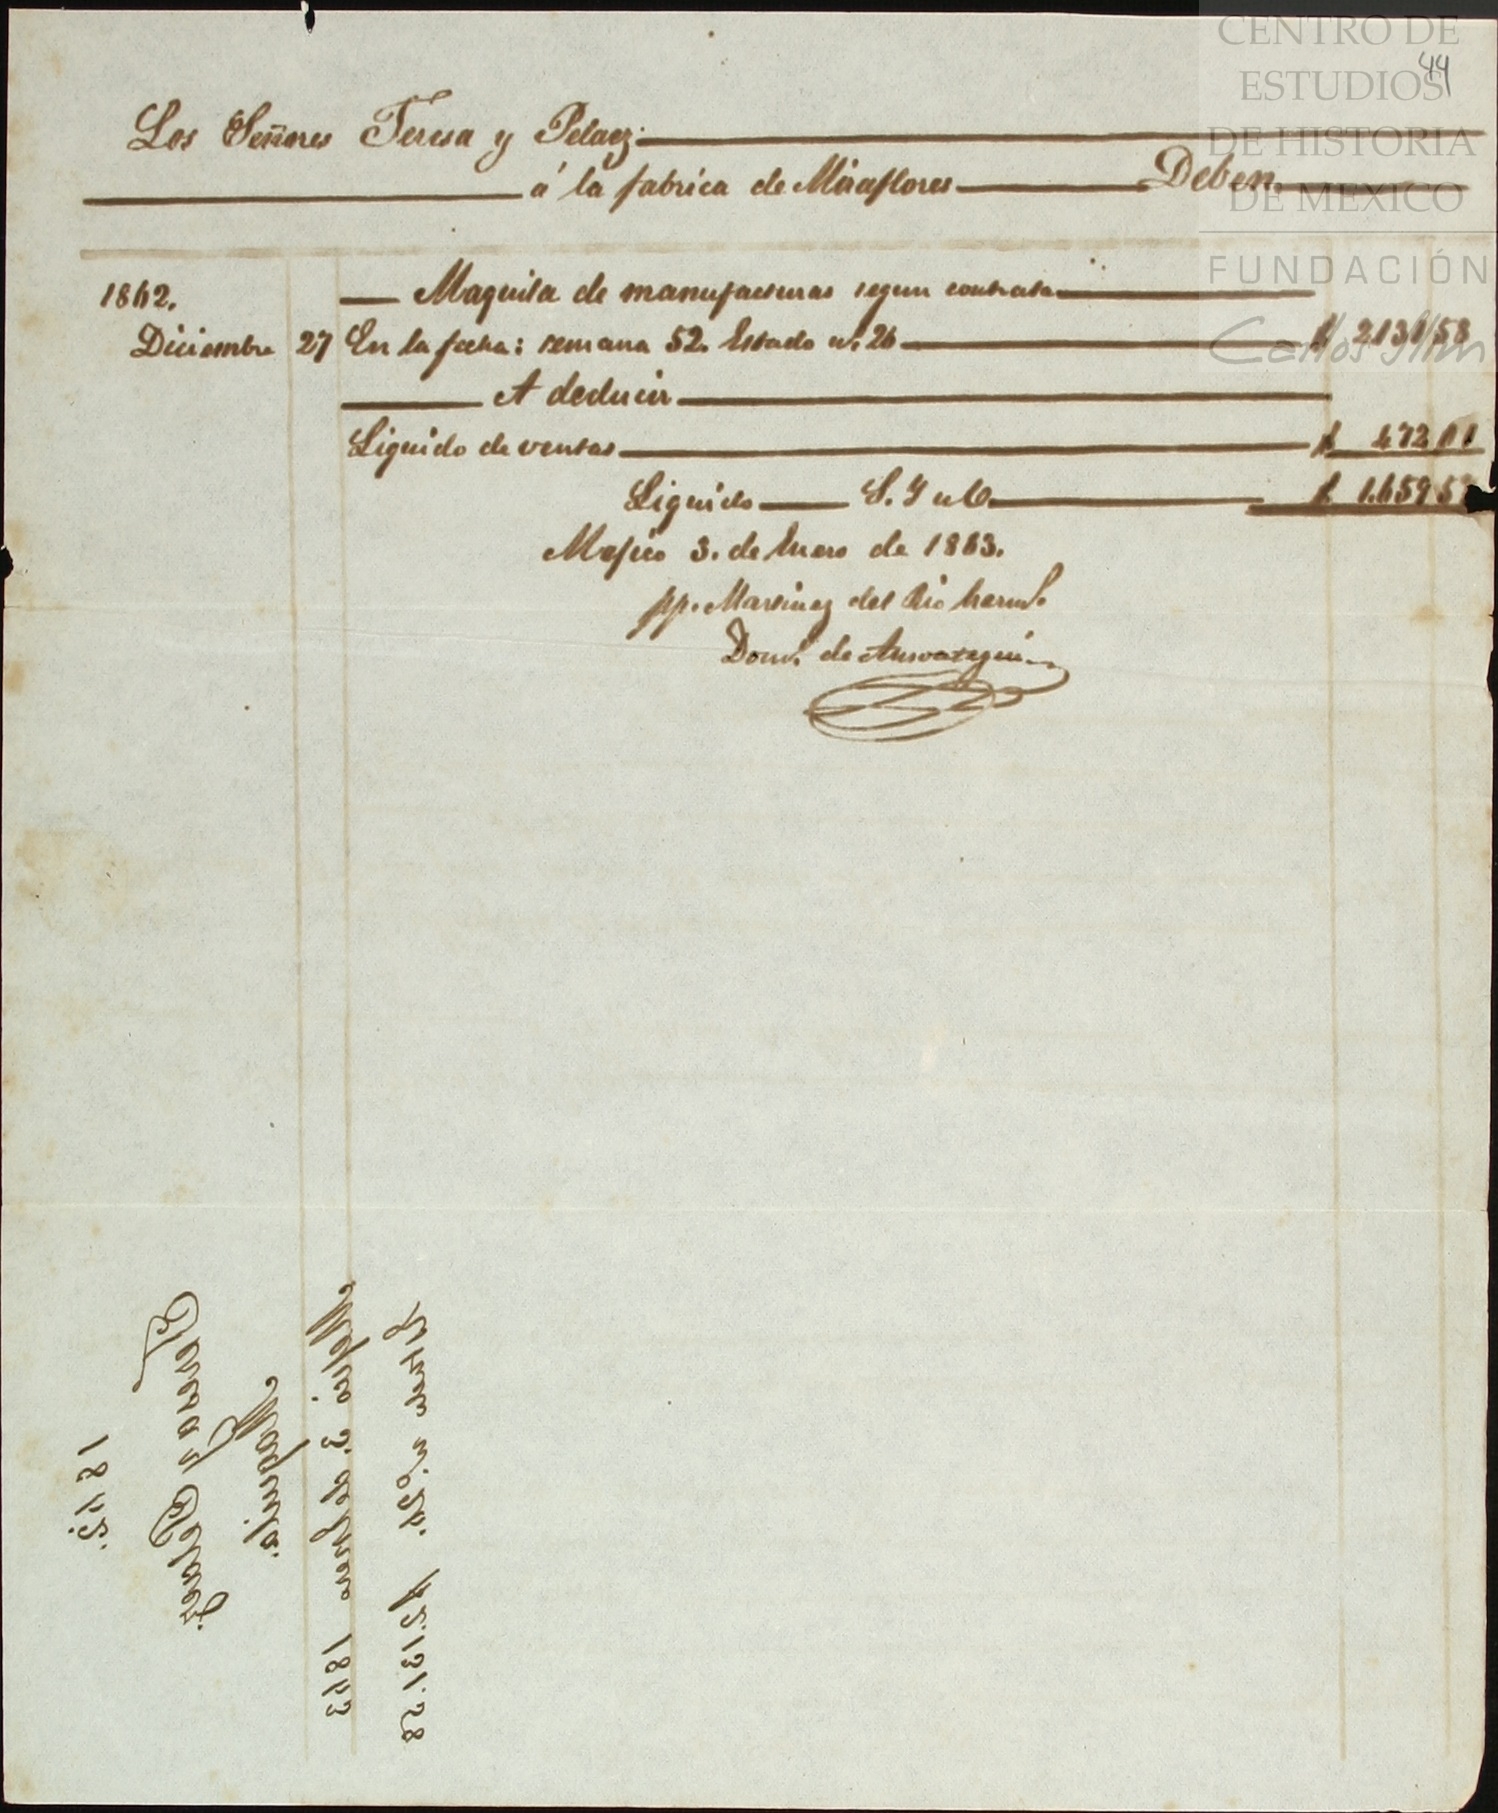 CENTRO DE
ESTUDIOS
DE HISTORIA
DE MEXICO
FUNDACIÓN
Carlos Slim
44
Los Señores Teresa y Pelaez
á la fabrica de Miraflores Deben.
1862. Maquila de manufacturas segun contrata
Diciembre 27 En la fecha: semana 52. Estado n.º 26 $ 2131 58
A deducir
Liquido de ventas $ 472
Liquido S. Y u O $ 1.659
Mejico 3. de Enero de 1863.
pp. Martinez del Rio herm.s
Dom.º de
1862.
Teresa y Pelaez
Maquila
Mejico 3. de Enero 1863
Estado n.º 26. $ 2,131.58